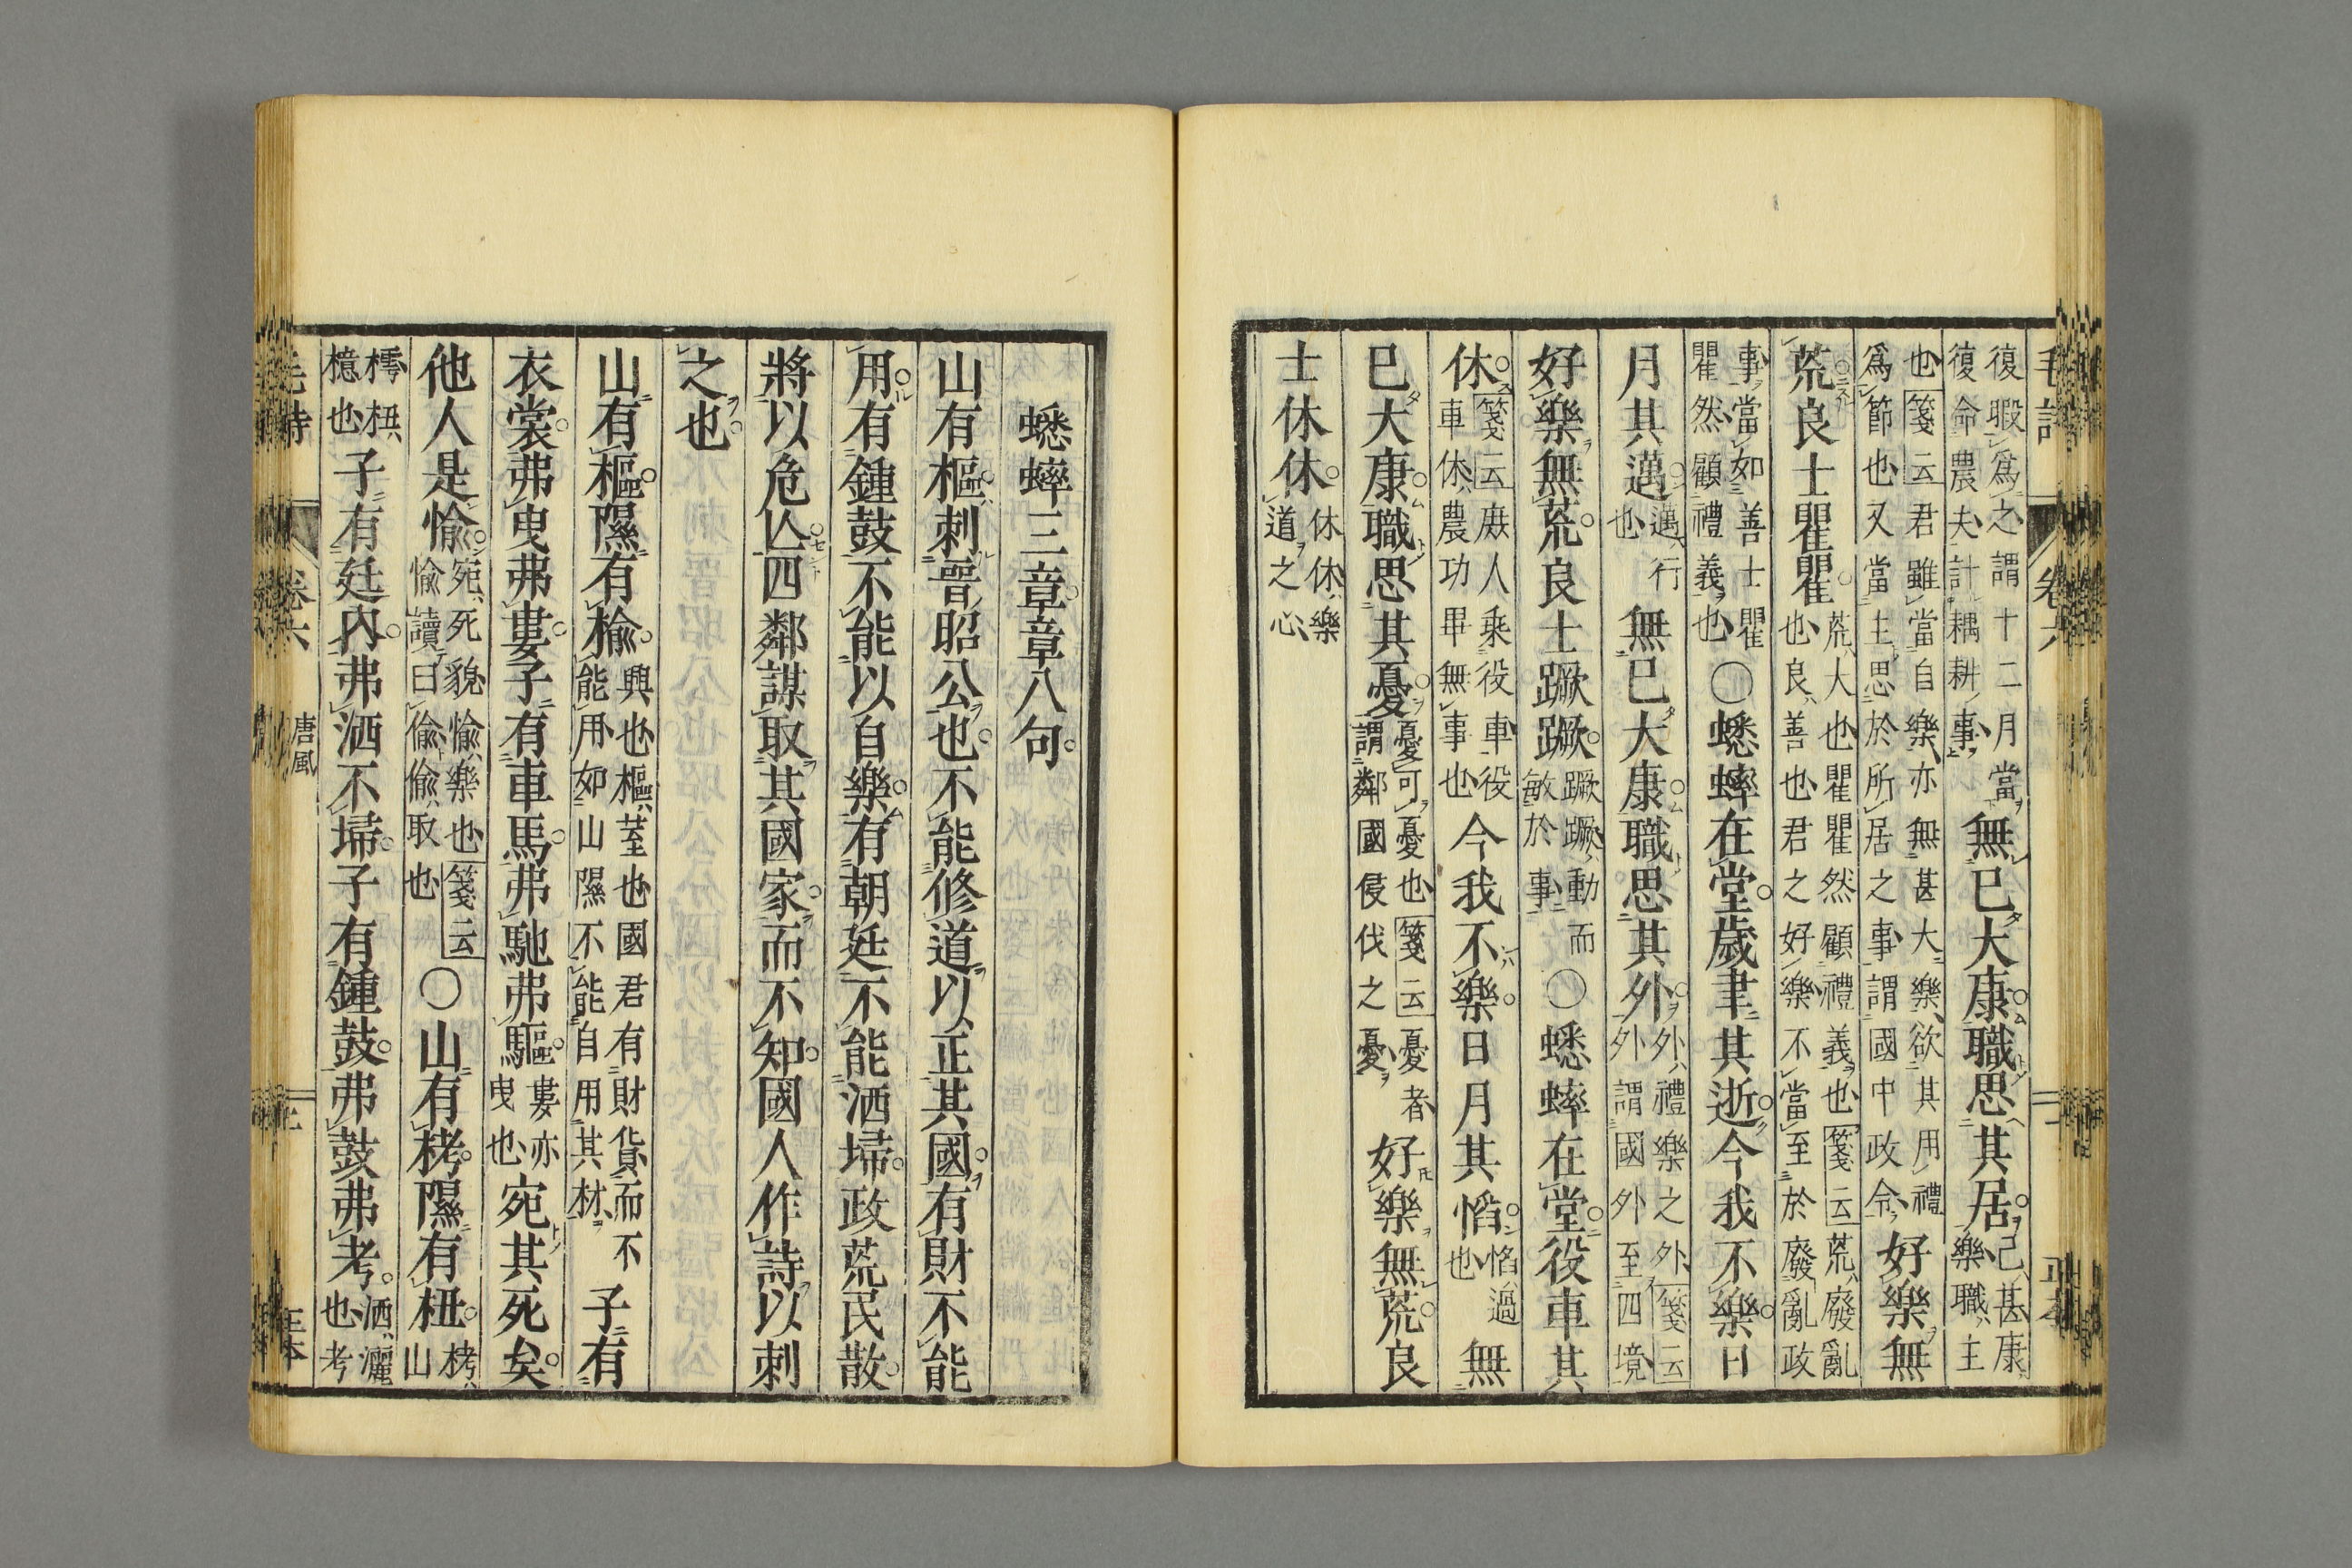 毛詩 卷六 二
復暇爲之謂十二月當
復命農夫計耦耕事
無已大康職思其居
已甚康
樂職主
也箋云君雖當自樂亦無甚大樂欲其用禮
爲節也又當主思於所居之事謂國中政令
好樂無
荒良士瞿瞿
荒大也瞿瞿然顧禮義也箋云荒廢亂
也良善也君之好樂不當至於廢亂政
事當如善士瞿
瞿然顧禮義也
〇蟋蟀在堂歲聿其逝今我不樂日
月其邁
邁行
也
無已大康職思其外
外禮樂之外箋云
外謂國外至四境
好樂無荒良士蹶蹶
蹶蹶動而
敏於事
〇蟋蟀在堂役車其
休
箋云庶人乘役車役
車休農功畢無事也
今我不樂日月其慆
慆過
也
無
已大康職思其憂
憂可憂也箋云憂者
謂鄰國侵伐之憂
好樂無荒良
士休休
休休樂
道之心
蟋蟀三章章八句
山有樞刺晉昭公也不能修道以正其國有財不能
用有鍾鼓不能以自樂有朝廷不能洒埽政荒民散
將以危亾四鄰謀取其國家而不知國人作詩以刺
之也
山有樞隰有楡
興也樞荎也國君有財貨而不
能用如山隰不能自用其材
子有
衣裳弗曳弗婁子有車馬弗馳弗驅
婁亦
曳也
宛其死矣
他人是愉
宛死貌愉樂也箋云
愉讀曰偸偸取也
〇山有栲隰有杻
栲山
樗杻
檍也
子有廷內弗洒不埽子有鍾鼓弗鼓弗考
洒灑
也考
毛詩 卷六 唐風 三